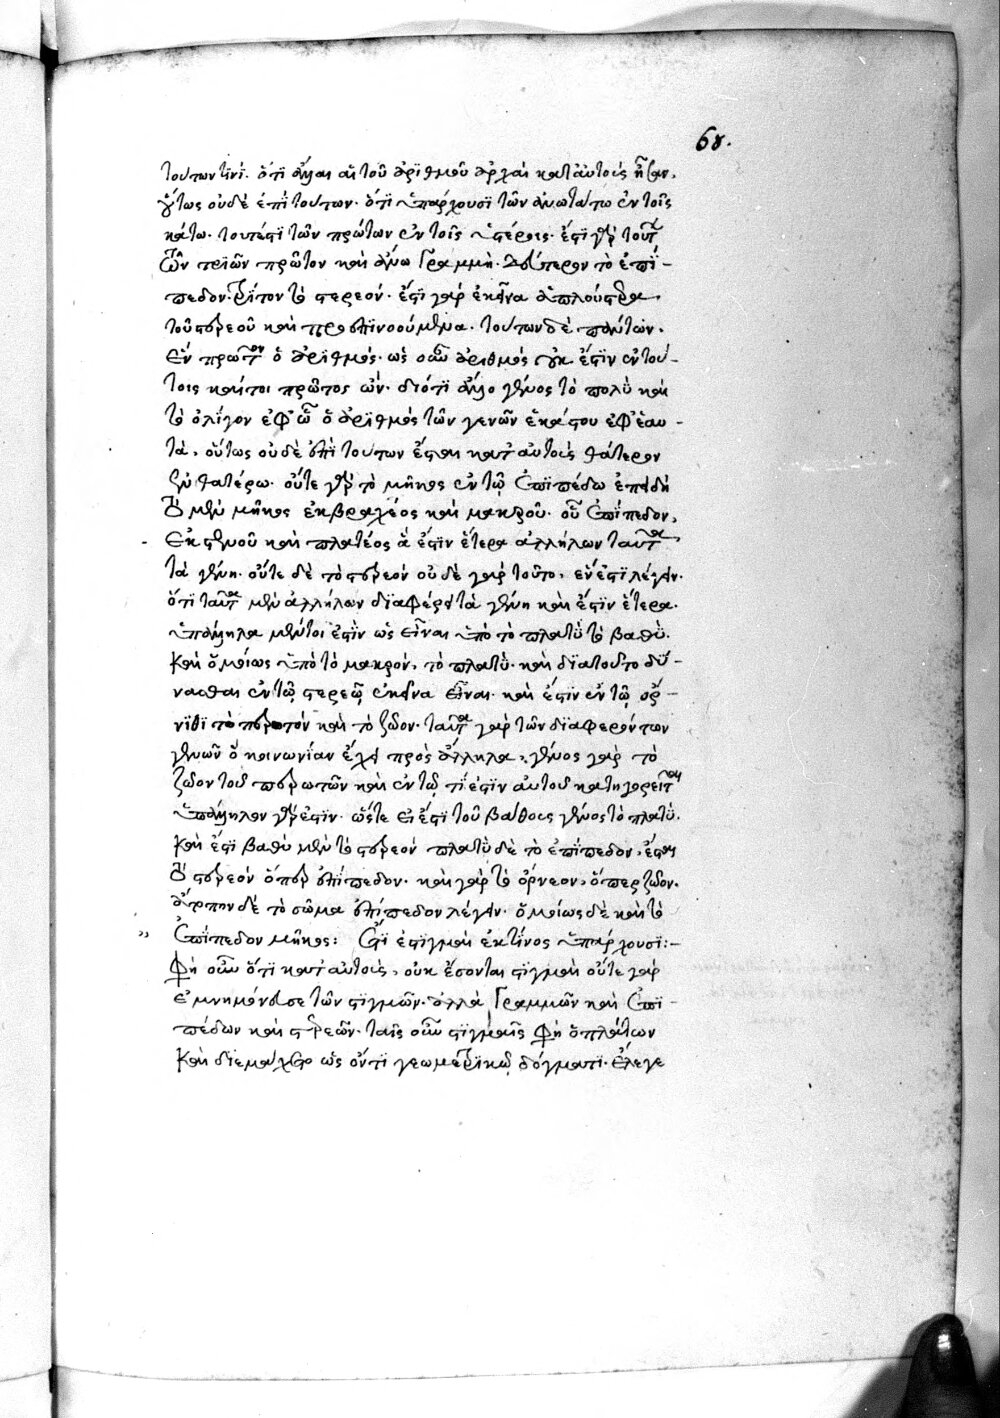 68.
τούτων τινί. ὅτι ἄλλαι αἱ τοῦ ἀριθμοῦ ἀρχαὶ κατ' αὐτοὺς ἦσαν,
οὕτως οὐδὲ ἐπὶ τούτων. ὅτι ὑπάρχουσι τῶν ἀνωτάτω ἐν τοῖς
κάτω. τουτέστι τῶν πρώτων ἐν τοῖς ὑστέροις. ἔστι γὰρ τούτων
τῶν τριῶν πρῶτον καὶ ἄνω γραμμή. δεύτερον τὸ ἐπί-
πεδον. τρίτον τὸ στερεόν. ἔστι γὰρ ἐκεῖνα ἁπλούστερα,
τοῦ στερεοῦ καὶ προεπινοούμενα. τούτων δὲ πάντων.
ἐν πρώτον ὁ ἀριθμός. ὡς οὖν ἀριθμὸς οὐκ ἔστιν ἐν τού-
τοις καίτοι πρῶτος ὤν. διότι ἄλλο γένος τὸ πολὺ καὶ
τὸ ὀλίγον ἐφ' ὧ ὁ ἀριθμὸς τῶν γενῶν ἑκάστου ἐφ' ἑαυ-
τὰ, οὕτως οὐδὲ ἐπὶ τούτων ἔσται κατ' αὐτοὺς θάτερον
ἐν θατέρω. οὔτε γὰρ τὸ μῆκος ἐν τῷ ἐπιπέδω ἐπειδὴ
τὸ μὲν μῆκος ἐκ βραχέος καὶ μακροῦ. τὸ δ' ἐπίπεδον,
ἐκ στενοῦ καὶ πλατέος ἅ ἐστιν ἕτερα ἀλλήλων ταῦτα
τὰ γένη. οὔτε δὲ τὸ στερεὸν οὐδὲ γὰρ τοῦτο, ἔνεστι λέγειν.
ὅτι ταῦτα μὲν ἀλλήλων διαφέρει τὰ γένη καὶ ἔστιν ἕτερα.
ὑπάλληλα μέντοι ἐστὶν ὡς εἶναι ὑπὸ τὸ πλατὺ τὸ βαθύ.
καὶ ὁμοίως ὑπὸ τὸ μακρὸν, τὸ πλατύ. καὶ διὰ τοῦτο δύ-
νασθαι ἐν τῷ στερεῷ ἐκεῖνα εἶναι. καὶ ἔστιν ἐν τῷ ὄρ-
νιθι τὸ πτερωτὸν καὶ τὸ ζῶον. ταῦτα γὰρ τῶν διαφερόντων
γενῶν ὃ κοινωνίαν ἔχει πρὸς ἄλληλα, γένος γὰρ τὸ
ζῶον τοῦ πτερωτῶν καὶ ἐν τῷ τί ἐστιν αὐτοῦ κατηγορεῖται
ὑπάλληλον γάρ ἐστιν. ὥστε εἰ ἔστι τοῦ βάθους γένος τὸ πλατύ.
καὶ ἔστι βαθὺ μὲν τὸ στερεὸν πλατὺ δὲ τὸ ἐπίπεδον, ἔσται
τὸ στερεὸν ὅπερ ἐπίπεδον. καὶ γὰρ τὸ ὄρνεον, ὅπερ ζῶον.
ἄτοπον δὲ τὸ σῶμα ἐπίπεδον λέγειν. ὁμοίως δὲ καὶ τὸ
ἐπίπεδον μῆκος: ἔτι ἐστιγμαὶ ἐκ τίνος ὑπάρχουσι:-
φὴ οὖν ὅτι κατ' αὐτοὺς, οὐκ ἔσονται στιγμαὶ οὔτε γὰρ
ἐμνημόνευσε τῶν στιγμῶν. ἀλλὰ γραμμῶν καὶ ἐπι-
πέδων καὶ στερεῶν. ταῖς οὖν στιγμαῖς φὴ ὁ πλάτων
καὶ διεμάχετο ὡς ὄντι γεωμετρικῷ δόγματι. ἔλεγε